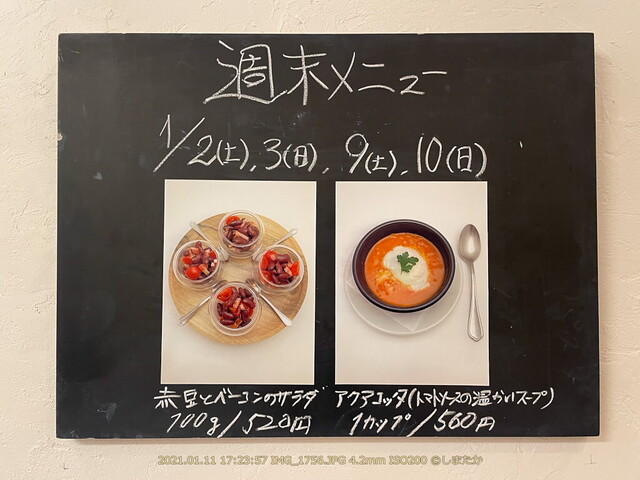 週末メニュー
1/2(土),3(日),9(土),10(日)
赤豆とベーコンのサラダ
100g/520円
アクアコッタ(トマトベースの温かいスープ)
1カップ/560円
2021.01.11 17:23:57 IMG_1756.JPG 4.2mm ISO200 ©しまたか